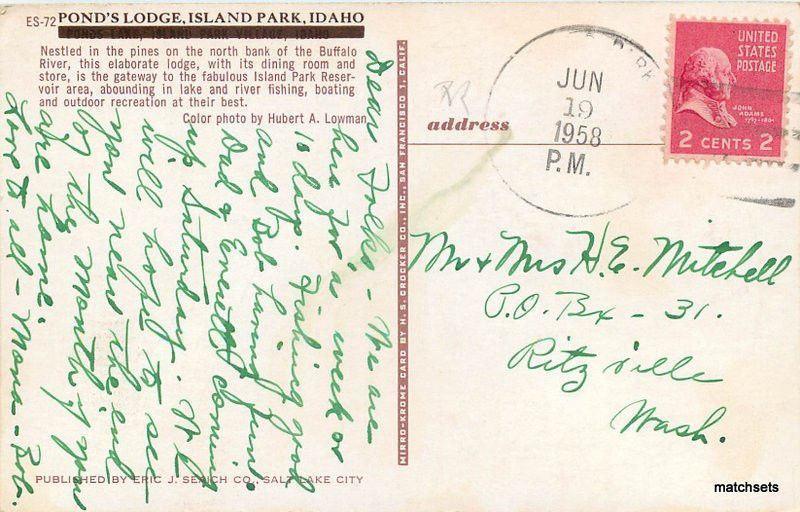 ES-72 POND'S LODGE, ISLAND PARK, IDAHO
PONDS LAKE, ISLAND PARK VILLAGE, IDAHO
Nestled in the pines on the north bank of the Buffalo
River, this elaborate lodge, with its dining room and
store, is the gateway to the fabulous Island Park Reser-
voir area, abounding in lake and river fishing, boating
and outdoor recreation at their best.
Color photo by Hubert A. Lowman
Dear Folks - We are
here for a week or
10 days. Fishing good
and Bob having fun.
Dad & Everett coming
up Saturday. We
will hope to see
you near the end
of the month if you
are home.
Love to all - Mona - Bob.
PUBLISHED BY ERIC J. SEAICH CO., SALT LAKE CITY
MIRRO-KROME CARD BY H. S. CROCKER CO., INC., SAN FRANCISCO 1, CALIF.
address
JUN
19
1958
P.M.
UNITED
STATES
POSTAGE
JOHN
ADAMS
2 CENTS 2
Mr + Mrs H. E. Mitchell
P.O. Bx - 31.
Ritzville
Wash.
matchsets